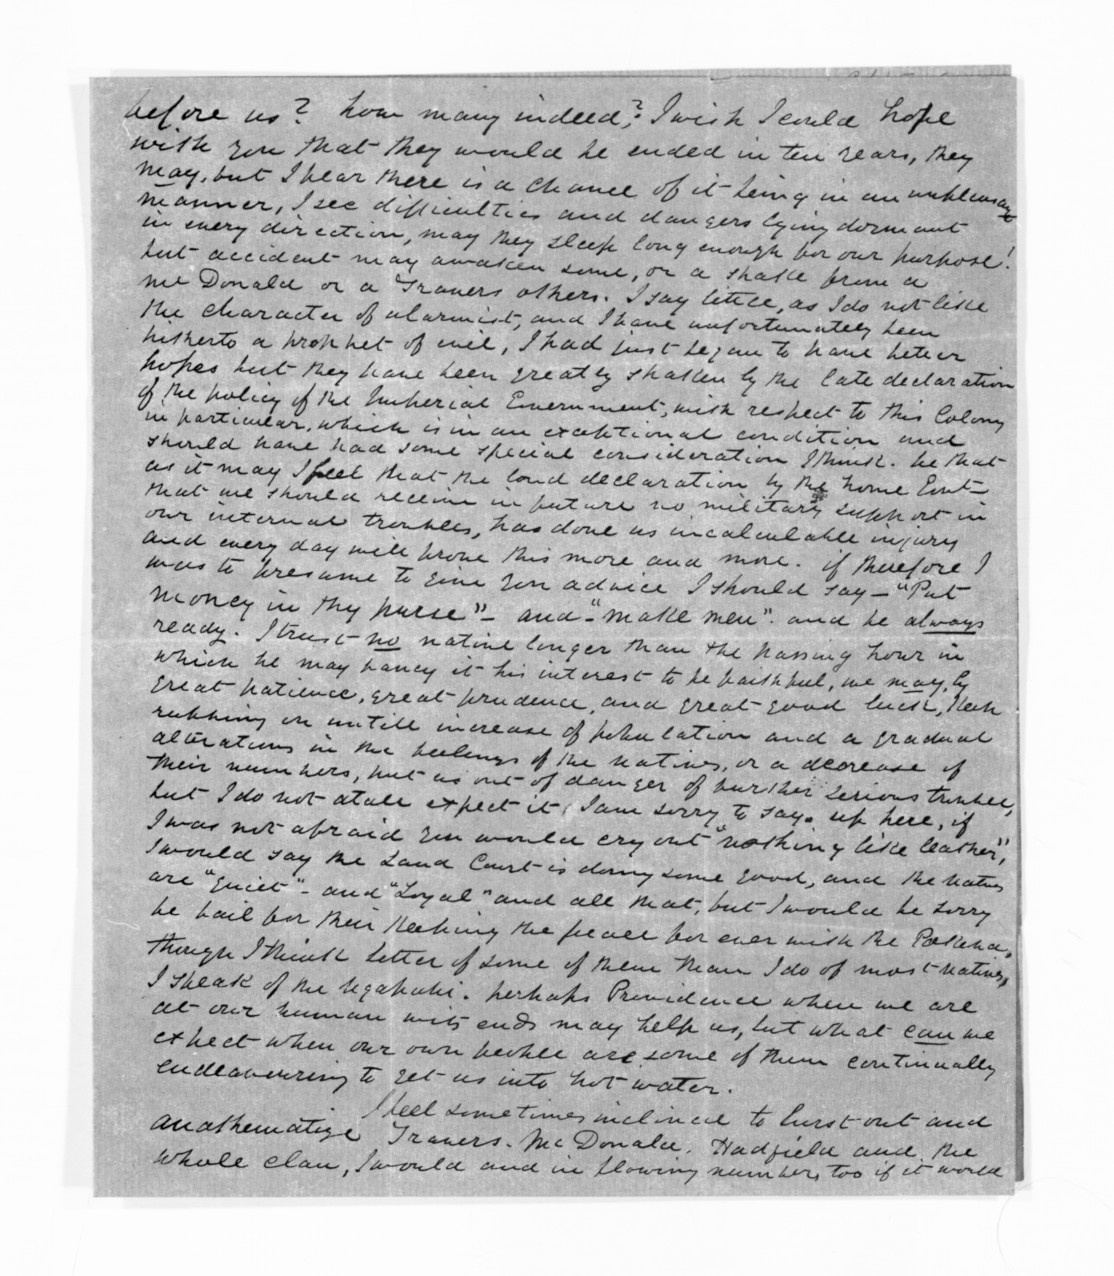 before us? how many indeed? I wish I could hope
with you that they would be ended in ten years, they
may, but I fear there is a chance of it being in an unpleasant
manner, I see difficulties and dangers lying dormant
in every direction, may they sleep long enough for our purpose!
but accident may awaken some, or a shake from a
McDonald or a Travers others. I say little, as I do not like
the character of alarmist, and I have unfortunately been
hitherto a prophet of evil, I had just began to have better
hopes but they have been greatly shaken by the late declaration
of the policy of the Imperial Government, with respect to this Colony
in particular, which is in an exceptional condition and
should have had some special consideration I think. be that
as it may I feel that the loud declaration by the home Govt
that we should receive in future no military support in
our internal troubles, has done us incalculable injury
and every day will prove this more and more. if therefore I
was to presume to give you advice I should say — "Put
money in thy purse" — and — "make men". and be always
ready. I trust no native longer than the passing hour in
which he may fancy it his interest to be faithful, we may, by
great patience, great prudence, and great good luck, keep
rubbing on untill increase of population and a gradual
alterations in the feelings of the natives, or a decrease of
their numbers, put us out of danger of further serious trouble,
but I do not atall expect it, I am sorry to say. up here, if
I was not afraid you would cry out "nothing like leather",
I would say the Land Court is doing some good, and the natives
are "quiet" — and "Loyal" and all that, but I would be sorry
be bail for their keeping the peace for ever with the Pakeha,
though I think better of some of them than I do of most natives,
I speak of the Ngapuhi. perhaps Providence when we are
at our human wits ends may help us, but what can we
expect when our own people are some of them continually
endeavouring to get us into hot water.
I feel sometimes inclined to burst out and
anathematize Travers. McDonald. Hadfield and the
whole clan, I would and in flowing numbers too if it would